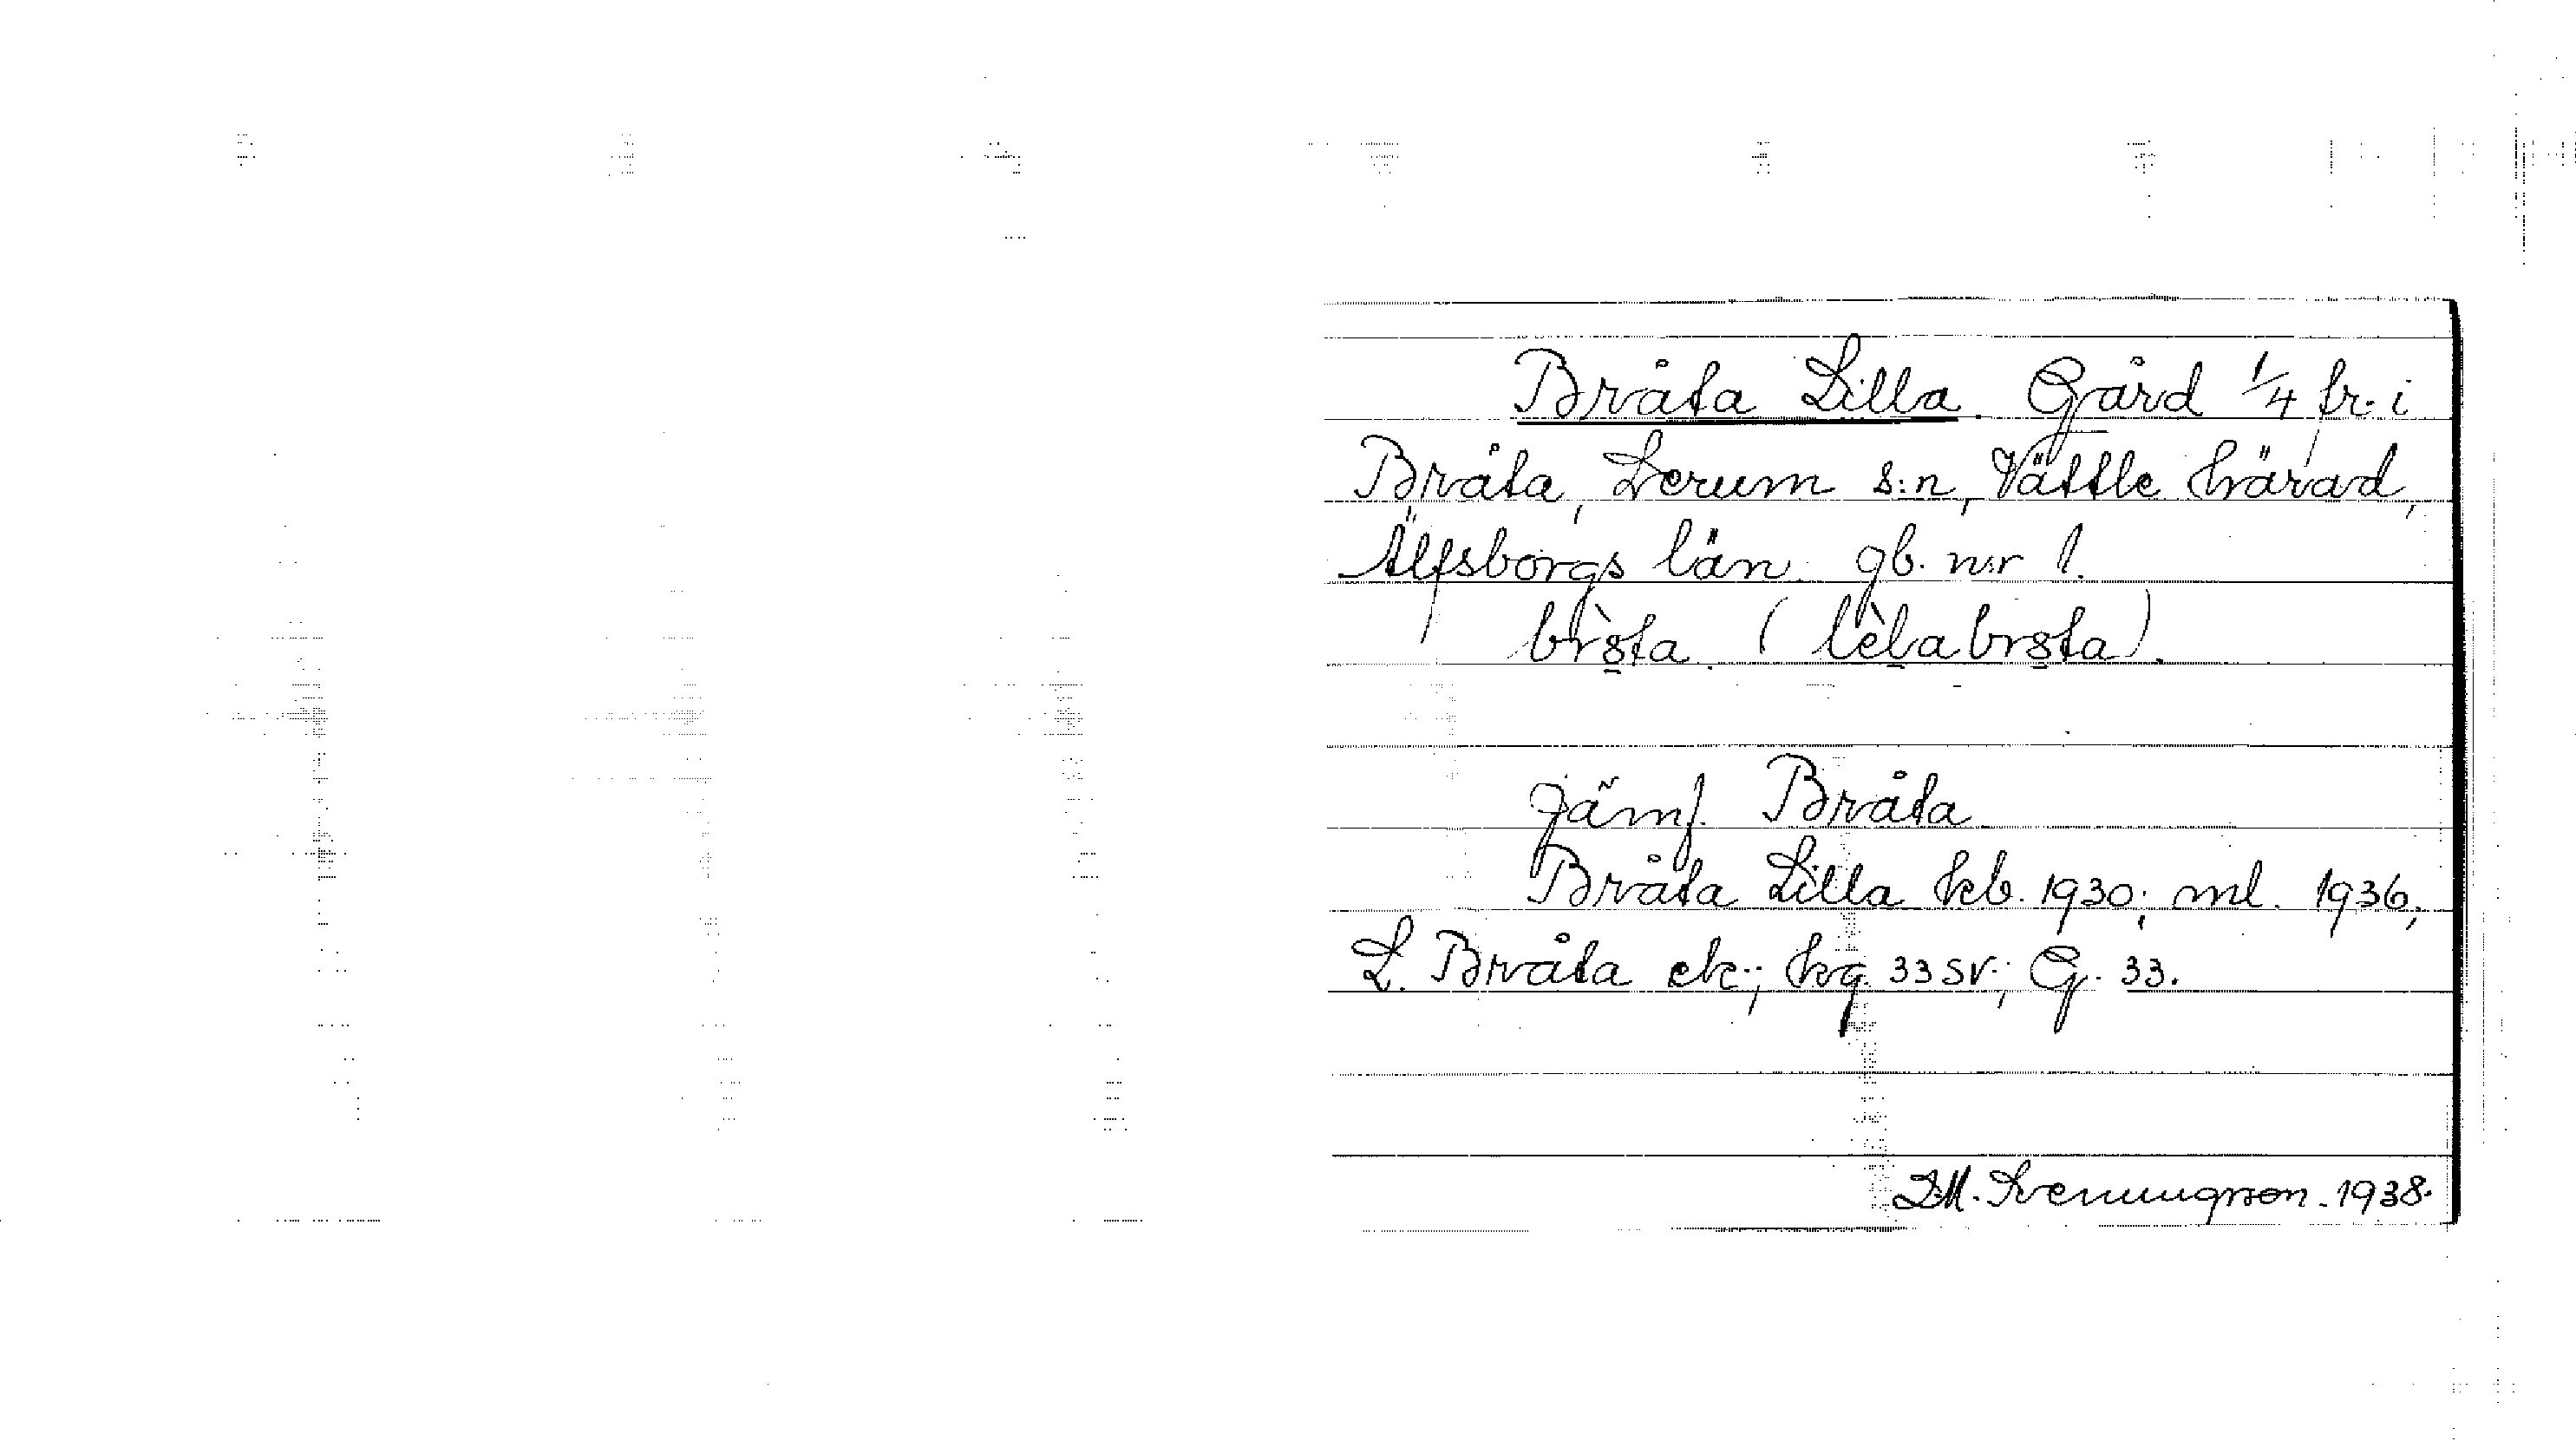 Bråta Lilla. Gård 1/4 fr. i
Bråta, Lerum s:n, Vättle härad,
Älfsborgs län. gb. n:r 1.
jämf. Bråta
Bråta Lilla kb. 1930; ml. 1936;
L. Bråta ek.; hrg. 33 SV.; G. 33.
D.M. Svenungsson. 1938.